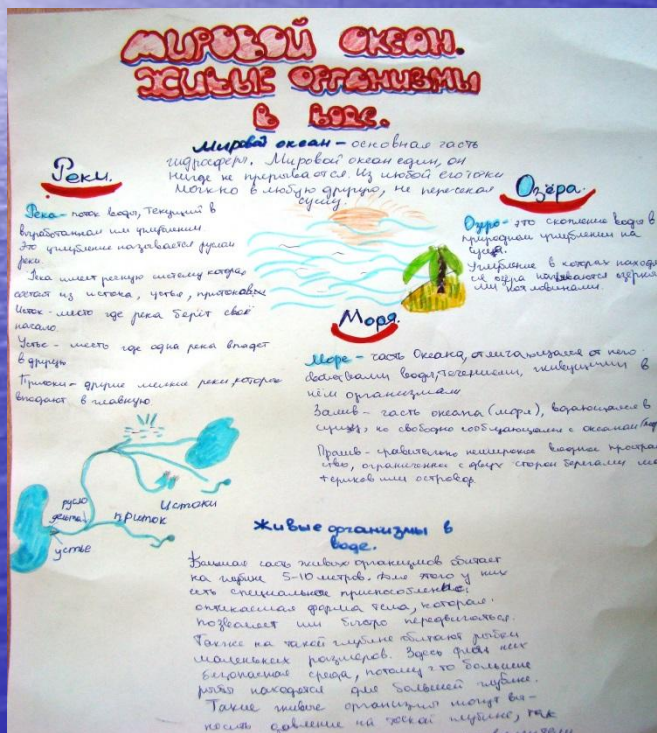 МИРОВОЙ ОКЕАН.
ЖИВЫЕ ОРГАНИЗМЫ
В ВОДЕ.
Мировой океан – основная часть
гидросферы. Мировой океан един, он
нигде не прерывается. Из любой его точки
можно в любую другую, не пересекая
сушу.
Реки.
Река – поток воды, текущий в
выработанном им углублении.
Это углубление называется руслом
реки.
Река имеет речную систему которая
состоит из истока, устья, притоков
Исток – место где река берёт своё
начало.
Устье – место где одна река впадет
в другую
Притоки – другие мелкие реки которые
впадают в главную
Озёра.
Озеро – это скопление воды в
природном углублении на
суше.
Углубление в которых находят
ся озёра называются озёрны
ми котловинами.
Моря.
Море – часть Океана, отличающаяся от него
свойствами воды, течениями, живущими в
нём организмами
Залив – часть океана (моря), вдающаяся в
сушу, но свободно сообщающаяся с океаном
Пролив – сравнительно неширокое водное простран
ство, ограниченное с двух сторон берегами ма
териков или островов
русло
дельта
устье
приток
истоки
Живые организмы в
воде.
Большая часть живых организмов обитает
на глубине 5-10 метров. Для этого у них
есть специальное приспособление:
обтекаемая форма тела, которая
позволяет им быстро передвигаться.
Также на такой глубине обитают рыбы
маленьких размеров. Здесь для них
безопасная среда, потому что большие
рыбы находятся большей глубине.
Такие живые организмы могут вы-
носить давление на такой глубине, так